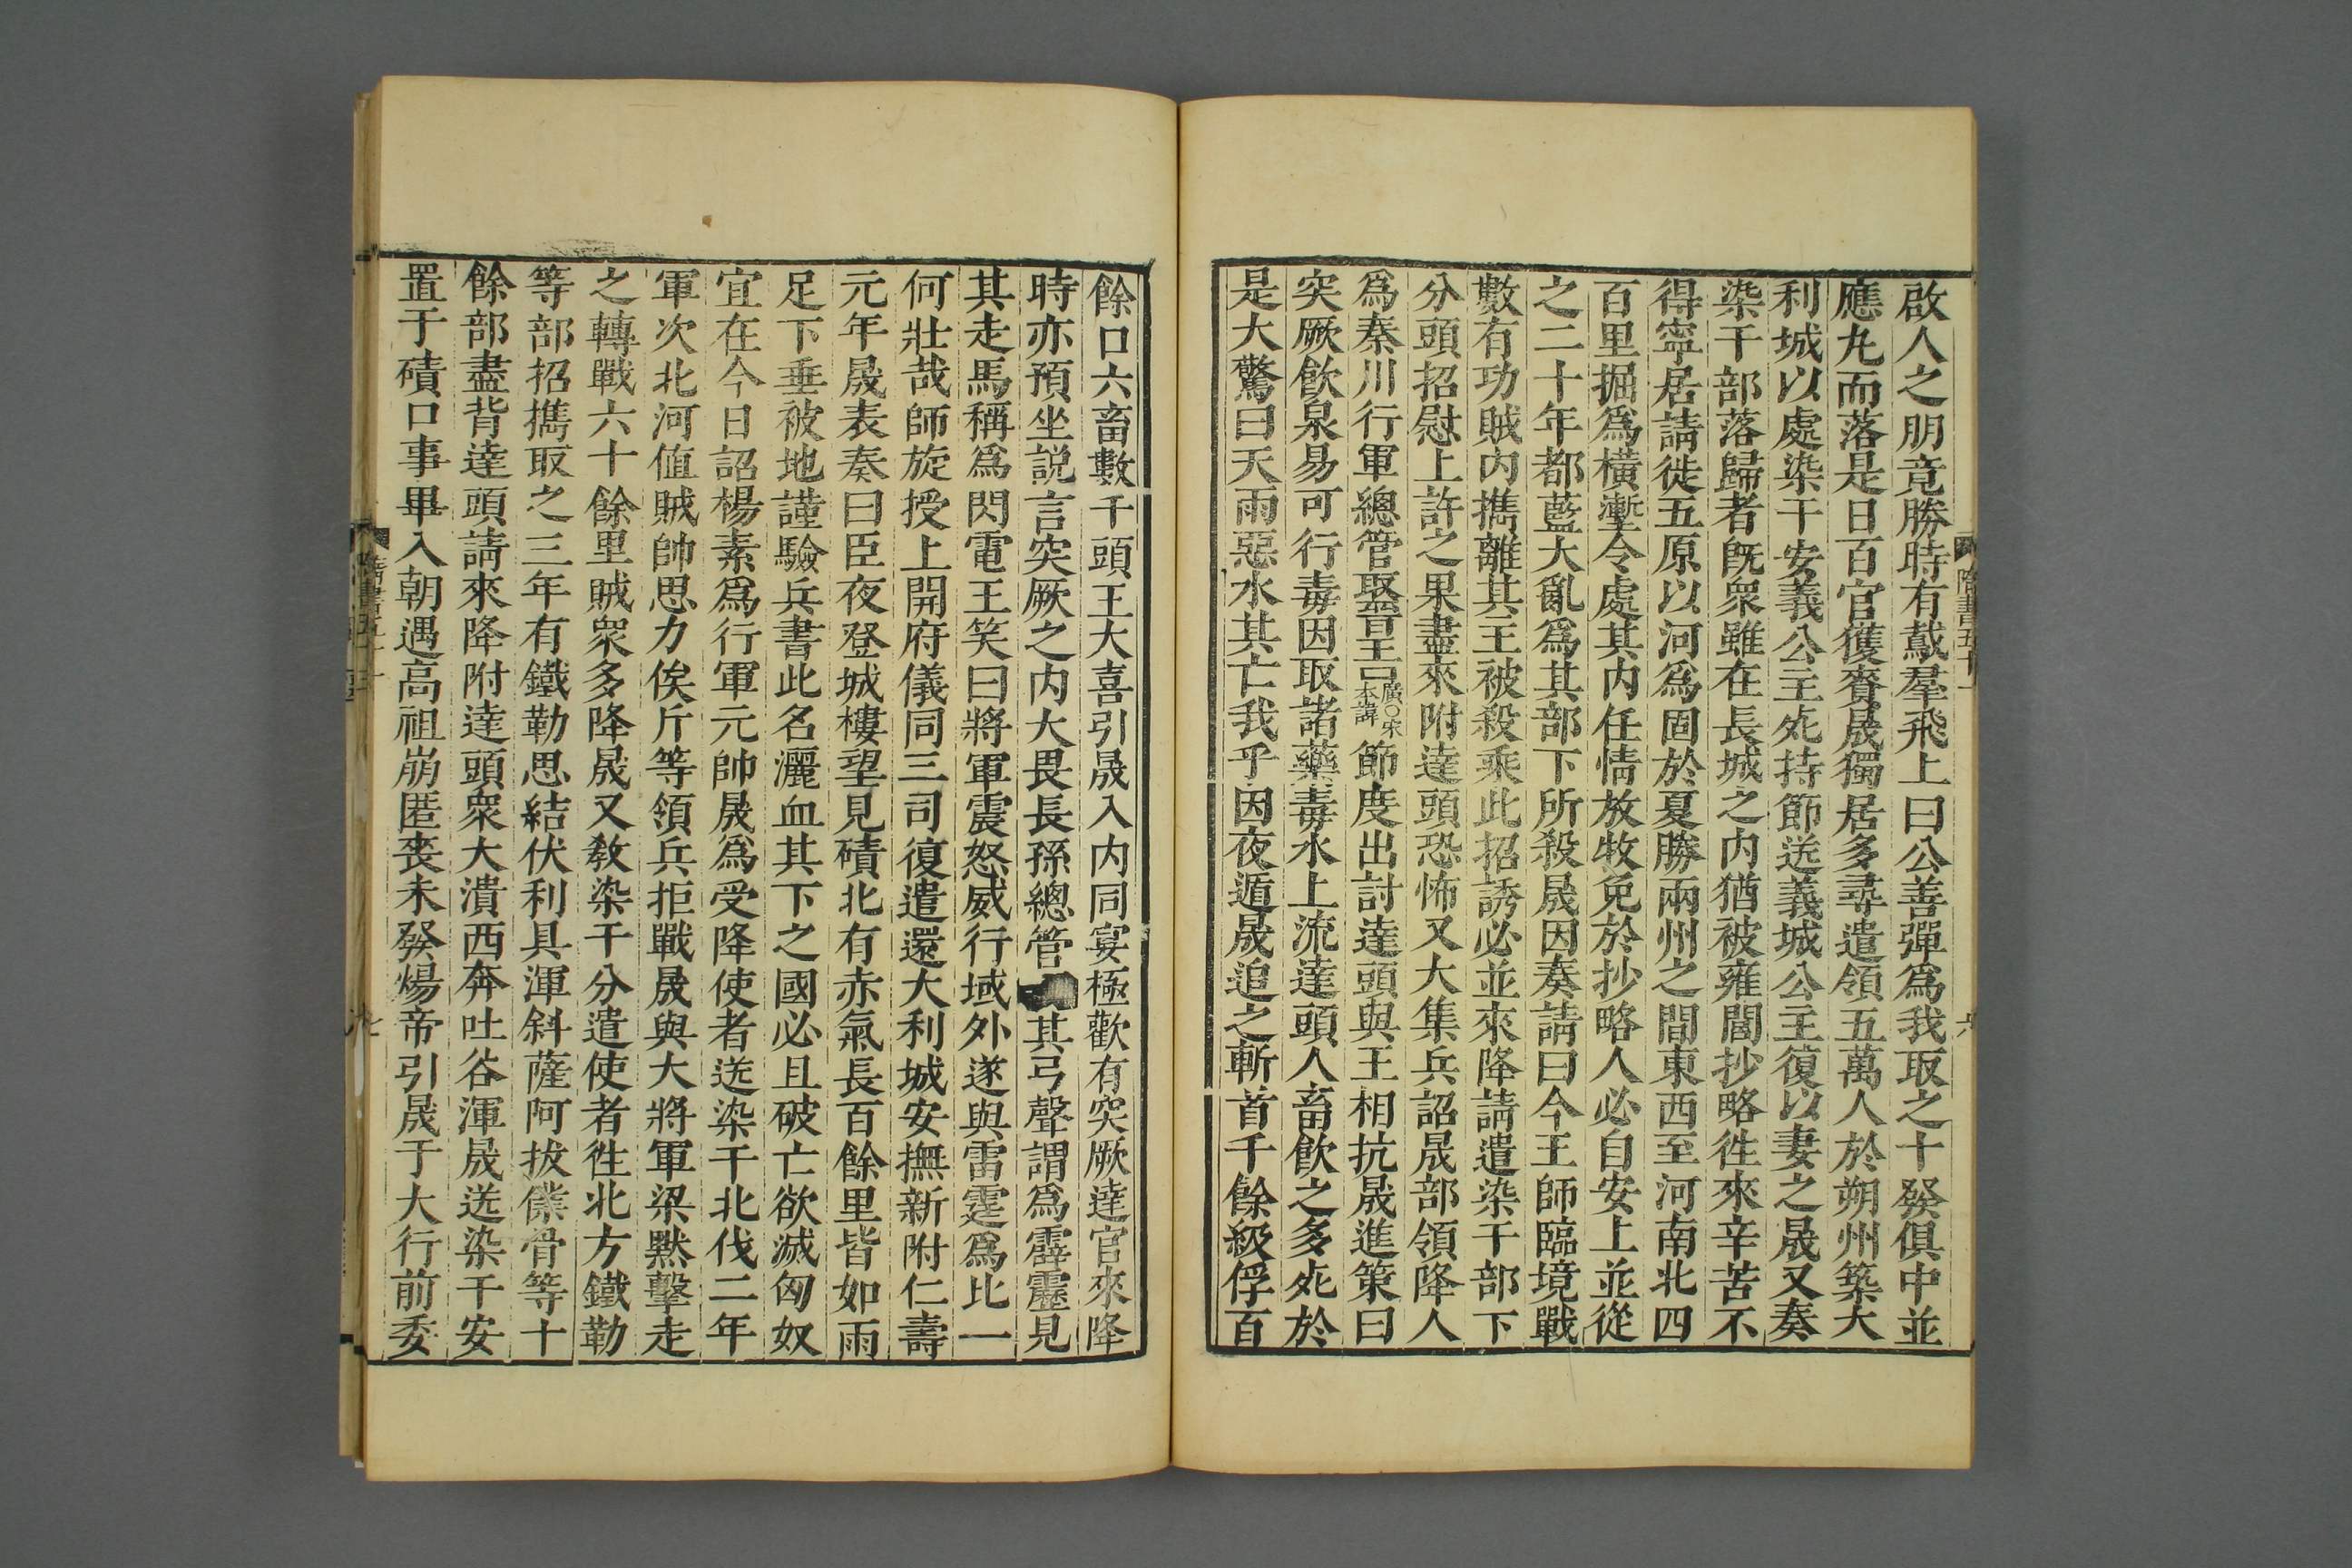 啟人之朋竟勝時有鳶羣飛上曰公善彈爲我取之十發俱中並
應丸而落是日百官獲賚晟獨居多尋遣領五萬人於朔州築大
利城以處染干安義公主死持節送義城公主復以妻之晟又奏
染干部落歸者旣衆雖在長城之内猶被雍閭抄略徃來辛苦不
得寧居請徙五原以河爲固於夏勝兩州之間東西至河南北四
百里掘爲橫壍令處其内任情放牧免於抄略人必自安上並從
之二十年都藍大亂爲其部下所殺晟因奏請曰今王師臨境戰
數有功賊内攜離其主被殺乘此招誘必並來降請遣染干部下
分頭招慰上許之果盡來附達頭恐怖又大集兵詔晟部領降人
爲秦川行軍總管聚晉王廣〇宋本諱節度出討達頭與王相抗晟進策曰
突厥飲泉易可行毒因取諸藥毒水上流達頭人畜飲之多死於
是大驚曰天雨惡水其亡我乎因夜遁晟追之斬首千餘級俘百
隋書五十一
六
餘口六畜數千頭王大喜引晟入内同宴極歡有突厥達官來降
時亦預坐説言突厥之内大畏長孫總管其弓聲謂爲霹靂見
其走馬稱爲閃電王笑曰將軍震怒威行域外遂與雷霆爲比一
何壯哉師旋授上開府儀同三司復遣還大利城安撫新附仁壽
元年晟表奏曰臣夜登城樓望見磧北有赤氣長百餘里皆如雨
足下垂被地謹驗兵書此名灑血其下之國必且破亡欲滅匈奴
宜在今日詔楊素爲行軍元帥晟爲受降使者送染干北伐二年
軍次北河值賊帥思力俟斤等領兵拒戰晟與大將軍梁默擊走
之轉戰六十餘里賊衆多降晟又敎染干分遣使者徃北方鐵勒
等部招攜取之三年有鐵勒思結伏利具渾斜薩阿拔僕骨等十
餘部盡背達頭請來降附達頭衆大潰西奔吐谷渾晟送染干安
置于磧口事畢入朝遇高祖崩匿喪未發煬帝引晟于大行前委
七